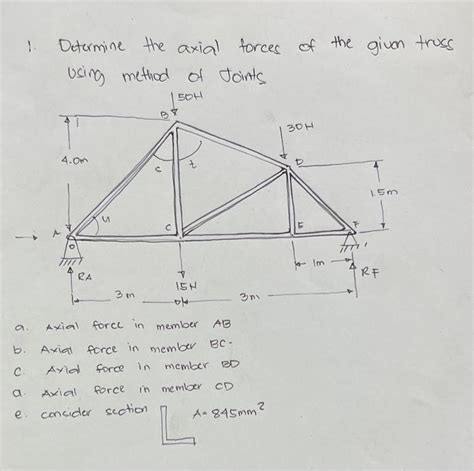 1. Determine the axial forces of the given truss
Using method of Joints
50N
B
30N
4.0m
s t
D
1.5m
u
A
C
E
F
1m
RA
15N
RF
3m
3m
a. Axial force in member AB
b. Axial force in member BC.
c. Axial force in member BD
d. Axial force in member CD
e. consider section
A = 845mm²